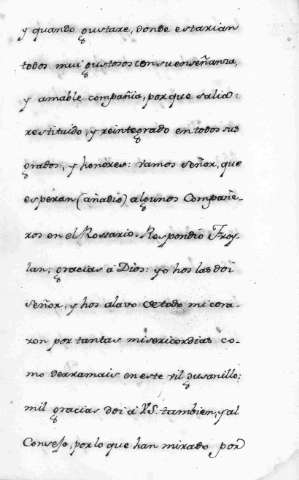 y quando gustare, donde estarian
todos mui gustosos con su enseñanza,
y amable compañia, porque salia
restituido, y reintegrado en todos sus
grados, y honores: vamos señor, que
esperan (añadió) algunos Compañe-
ros en el Rossario. Respondio Froy-
lan, gracias a Dios: yo hos las doi
señor, y hos alavo de todo mi cora-
zon por tantas misericordias co-
mo derramais en este vil gusanillo:
mil gracias doi a V.S. tambien, y al
Consejo, por lo que han mirado por